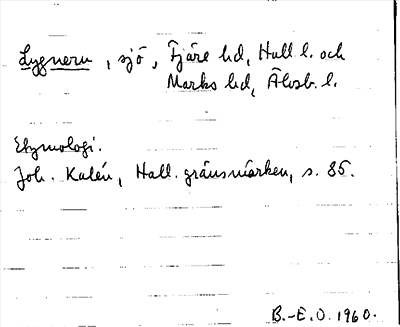 Lygnern, sjö, Fjäre hd, Hall. l. och
Marks hd, Älvsb. l.
Etymologi.
Joh. Kalén, Hall. gränsmärken, s. 85.
B.-E. O. 1960.